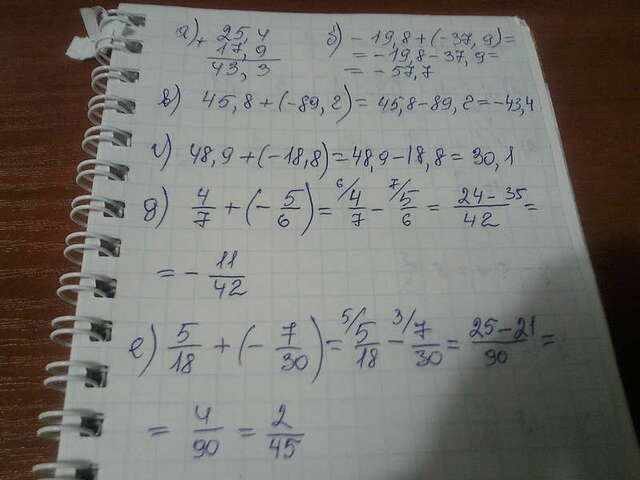 а) + 25,4
17,9
43,3
б) - 19,8 + (-37,9) =
= - 19,8 - 37,9 =
= - 57,7
в) 45,8 + (-89,2) = 45,8 - 89,2 = -43,4
г) 48,9 + (-18,8) = 48,9 - 18,8 = 30,1
д) 4/7 + (- 5/6) = 6/ 4/7 - 7/ 5/6 = (24 - 35)/42 =
= - 11/42
е) 5/18 + (- 7/30) = 5/ 5/18 - 3/ 7/30 = (25 - 21)/90 =
= 4/90 = 2/45